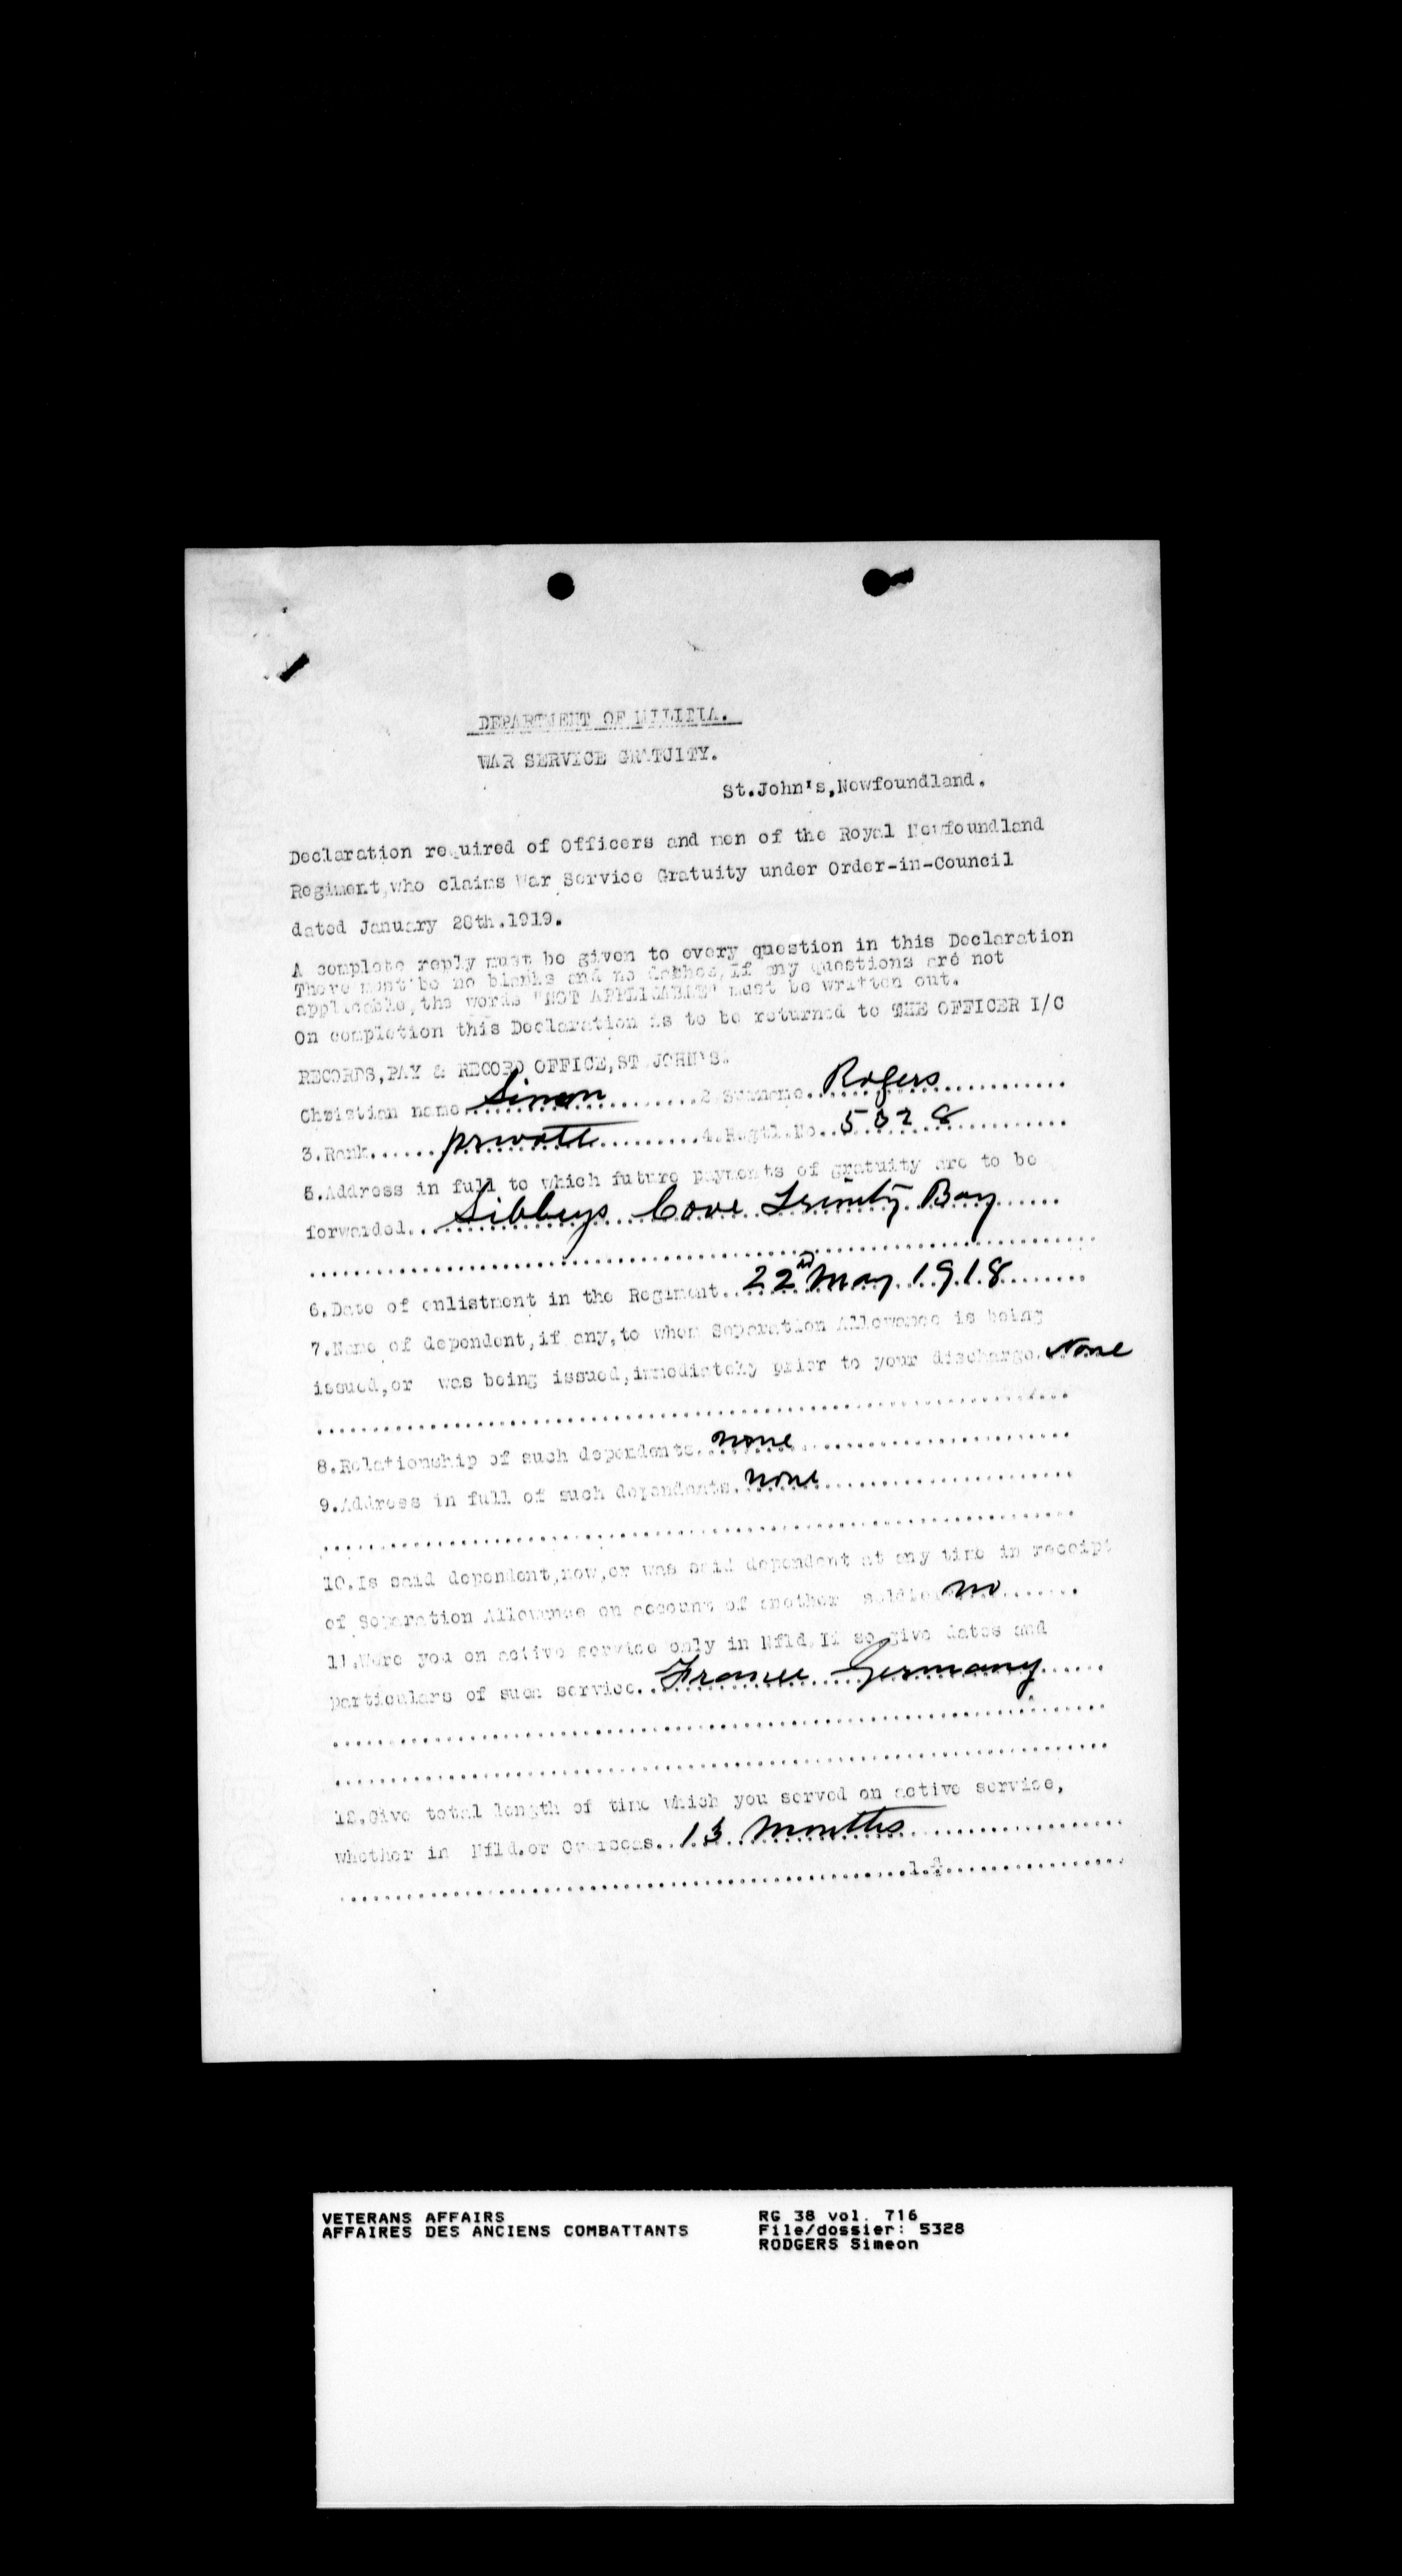 DEPARTMENT OF MILITIA.
WAR SERVICE GRATUITY.
St.John's,Newfoundland.
Declaration required of Officers and men of the Royal Newfoundland
Regiment,who claims War Service Gratuity under Order-in-Council
dated January 28th.1919.
A complete reply must be given to every question in this Declaration
There must be no blanks and no dashes,If any questions are not
applicable,the words "NOT APPLICABLE" must be written out.
On completion this Declaration is to be returned to THE OFFICER I/C
RECORDS,PAY & RECORD OFFICE,ST.JOHN'S.
Christian name Simon 2.Surname Rogers
3.Rank private 4.Regtl.No. 5328
5.Address in full to which future payments of gratuity are to be
forwarded Sibbeys Cove Trinity Bay
6.Date of enlistment in the Regiment 22nd May 1918
7.Name of dependent,if any,to whom Separation Allowance is being
issued,or was being issued,immediately prior to your discharge None
8.Relationship of such dependents none
9.Address in full of such dependents none
10.Is said dependent,now,or was said dependent at any time in receipt
of Separation Allowance on account of another soldier no
11.Were you on active service only in Nfld.If so give dates and
particulars of such service France Germany
12.Give total length of time which you served on active service,
whether in Nfld.or Overseas 13 months
VETERANS AFFAIRS RG 38 vol. 716
AFFAIRES DES ANCIENS COMBATTANTS File/dossier: 5328
RODGERS Simeon